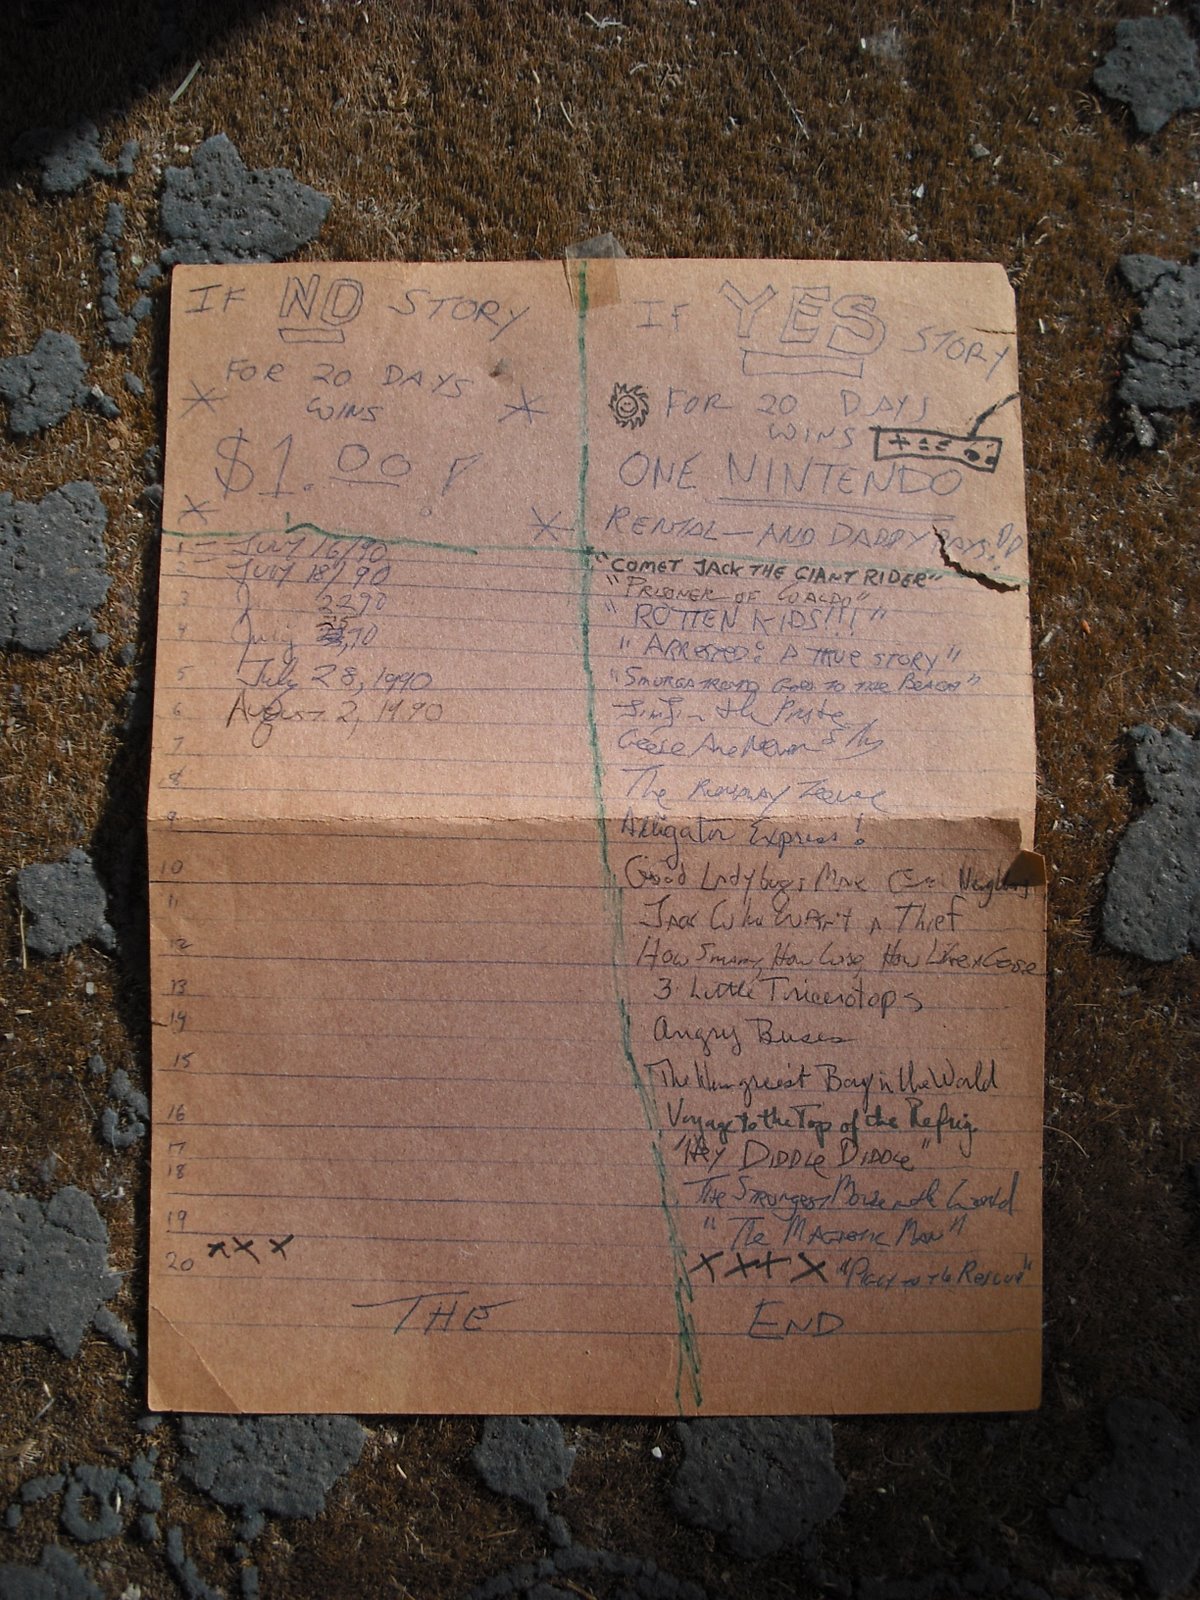 IF NO STORY
FOR 20 DAYS
WINS
$1.00!
IF YES STORY
FOR 20 DAYS
WINS
ONE NINTENDO
RENTAL — AND DADDY PAYS!!
1 - JULY 16/90
2 - JULY 18/90
3 22 90
4 July 25, 90
5 July 28, 1990
6 August 2, 1990
7
8
9
10
11
12
13
14
15
16
17
18
19
20 XXX
"COMET JACK THE GIANT RIDER"
"PRISONER OF WALDO"
"ROTTEN KIDS!!!"
"ARRESTED: A TRUE STORY"
GOES TO THE BEACH"
the
Geese
The Runaway
Alligator Express!
Good Ladybugs Make
Jack Who Wasn't A Thief
How Smart, How Wise, How Like a Goose
3 Little Triceratops
Angry Buses
The Hungriest Boy in the World
Voyage to the Top of the Refrig.
"Hey DIDDLE DIDDLE"
The Strongest Mouse in the World
"The Magnetic Man"
XXXX "Piggy to the Rescue"
THE END